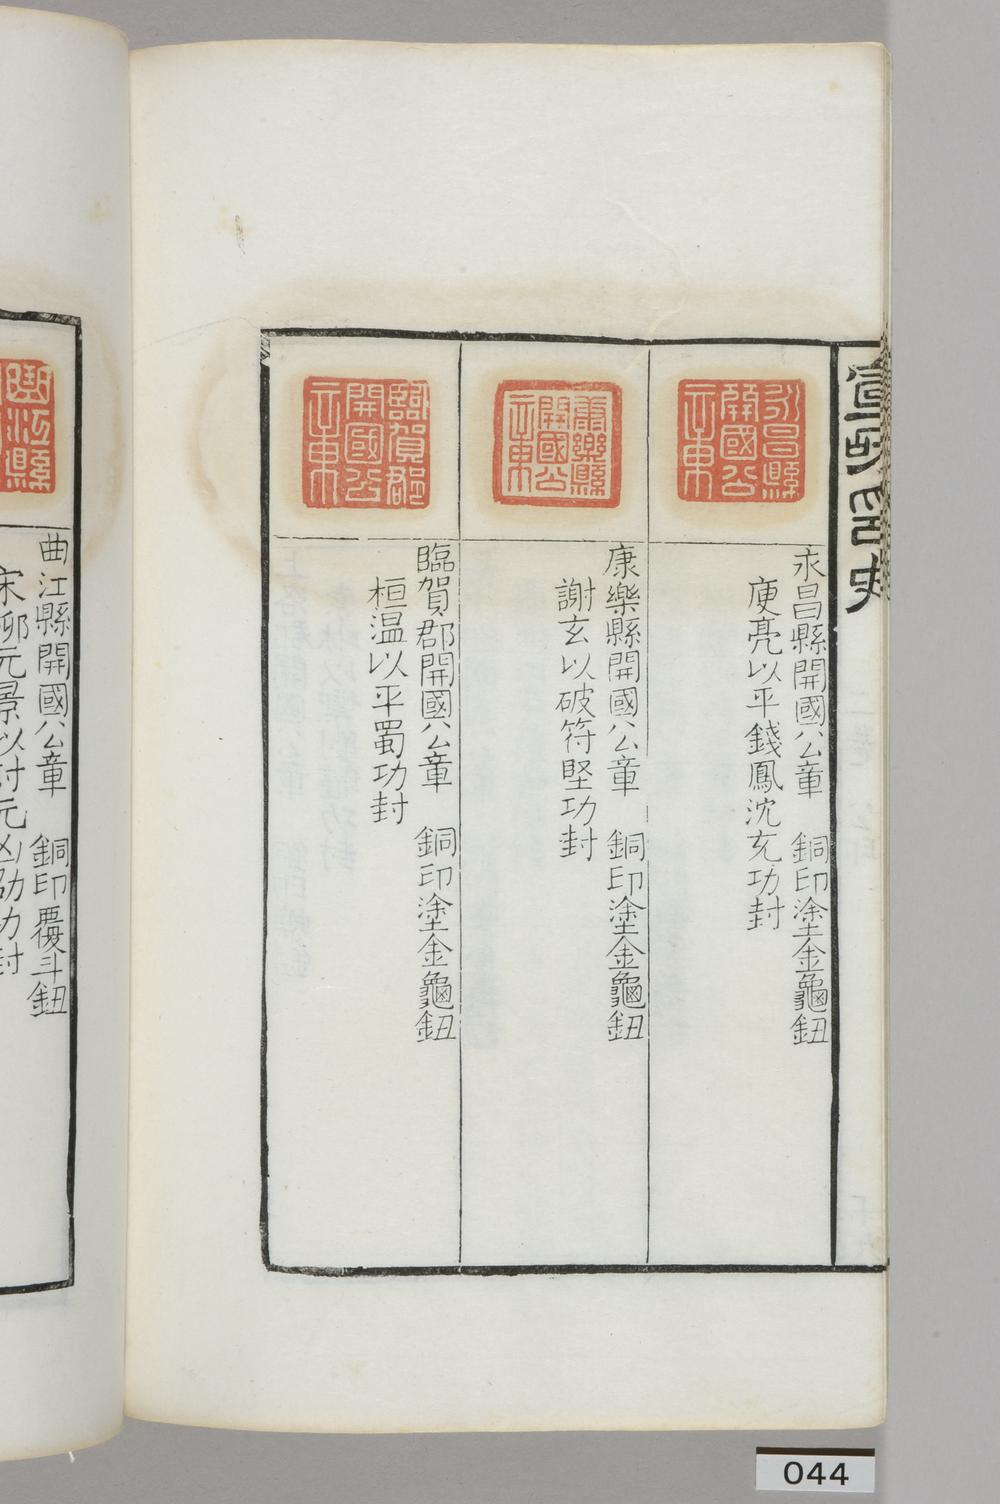 宣和印史
永昌縣開國公章
永昌縣開國公章　銅印塗金龜鈕
庾亮以平錢鳳沈充功封
康樂縣開國公章
康樂縣開國公章　銅印塗金龜鈕
謝玄以破符堅功封
臨賀郡開國公章
臨賀郡開國公章　銅印塗金龜鈕
桓温以平蜀功封
曲江縣
曲江縣開國公章　銅印覆斗鈕
宋柳元景以討元凶劭功封
044